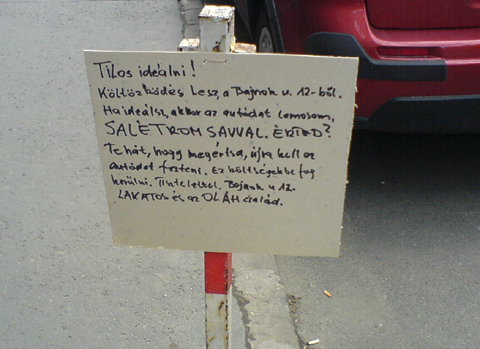 Tilos ideálni!
Költözködés Lesz, a Bajnok u. 12-ből.
Ha ideálsz, akkor az autódat lemosom,
SALÉTROM SAVVAL. ÉRTED?
Tehát, hogy megértsd, újra kell az
autódat festeni. Ez költségekbe fog
kerülni. Tisztelettel. Bajnok u 12.
LAKATOS és az OLÁH család.